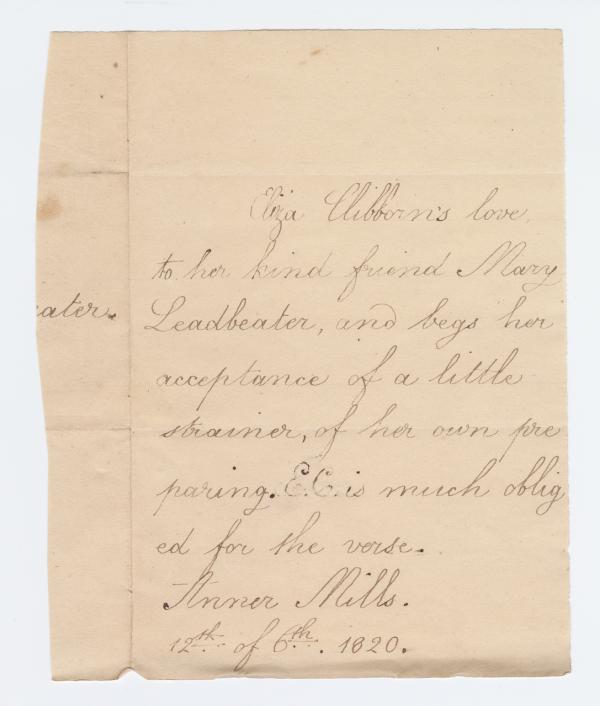 Eliza Clibborn's love
to her kind friend Mary
eater.
Leadbeater, and begs her
acceptance of a little
strainer, of her own pre
paring. E.C. is much oblig
ed for the verse.
Anner Mills.
12th. of 6th. 1820.